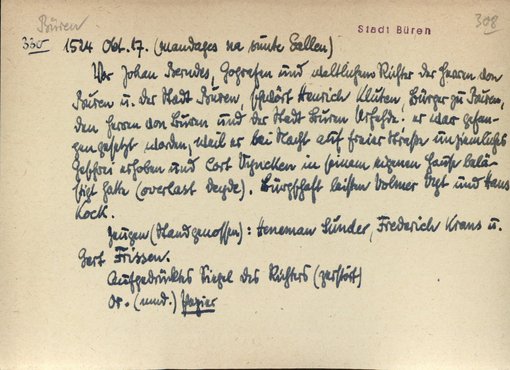 Büren
Stadt Büren
308
330 1524 Okt. 17. (mandages na sunte Gallen)
Vor Johan Berndes, Gografen und weltlichem Richter der Herren von
Büren u. der Stadt Büren, schwört Henrich Kluten, Bürger zu Büren,
den Herren von Büren und der Stadt Büren Urfehde. er war gefan-
gengesetzt worden, weil er bei Nacht auf freier Straße unziemliches
Geschrei erhoben und Cort in seinem eigenen Hause belä-
stigt hatte (overlast deyde). Bürgschaft leisten Volmer Vogt und Hans
Kock.
Zeugen (Standgenossen): Heneman Sunder, Frederich Krans u.
Gert Frissen.
Aufgedrücktes Siegel des Richters (zerstört)
Or. (mnd.) Papier